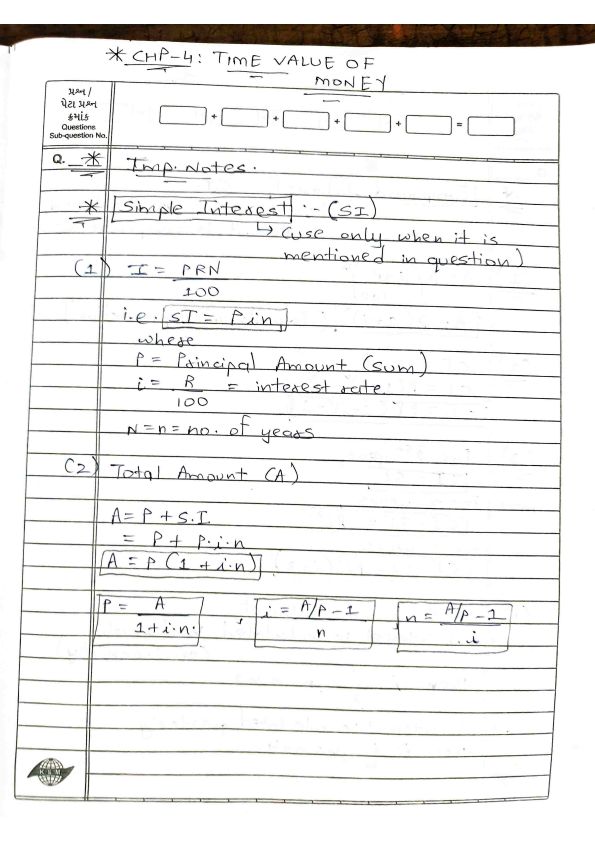 * CHP-4: TIME VALUE OF
MONEY
પ્રશ્ન /
પેટા પ્રશ્ન
ક્રમાંક
Questions
Sub-question No.
+ + + + =
Q. * Imp. Notes.
* Simple Interest :- (SI)
↳ (use only when it is
mentioned in question)
(1) I = PRN
100
i.e. SI = Pin
where
P = Principal Amount (sum)
i = R = interest rate.
100
N = n = no. of years
(2) Total Amount (A)
A = P + S.I.
= P + P.i.n
A = P (1 + i.n)
P = A , i = A/P - 1 , n = A/P - 1
1+i.n. n i